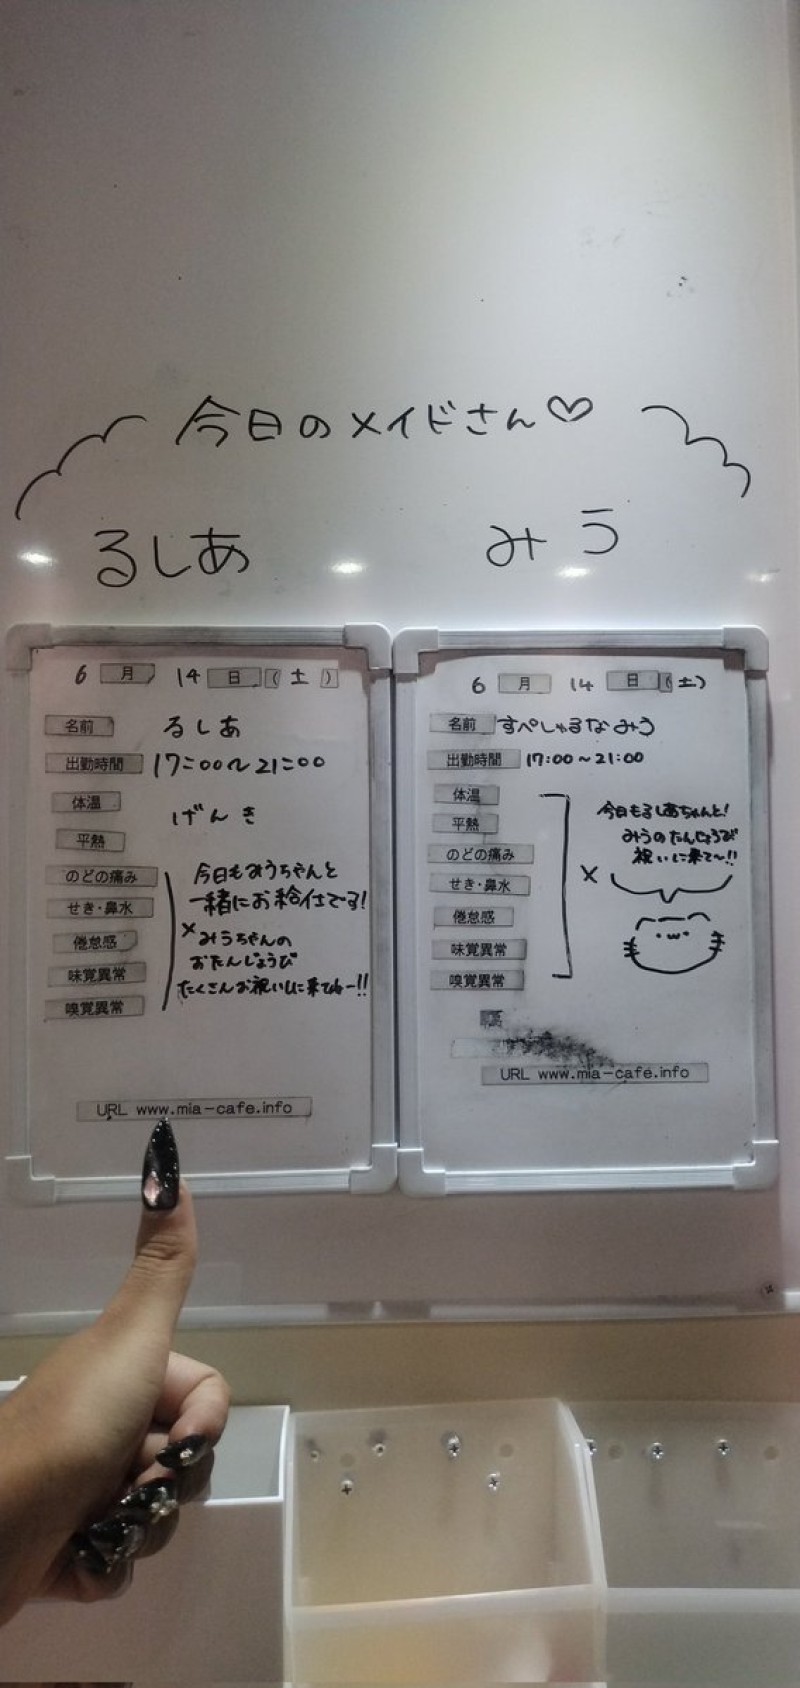 今日のメイドさん♡
るしあ
みう
6月14日(土)
名前 るしあ
出勤時間 17:00~21:00
体温
げんき
平熱
のどの痛み
せき・鼻水
倦怠感
味覚異常
嗅覚異常
×
今日もみうちゃんと
一緒にお給仕です!
みうちゃんの
おたんじょうび
たくさんお祝いしに来てねー!!
URL www.mia-cafe.info
6月14日(土)
名前 すぺしゃるなみう
出勤時間 17:00~21:00
体温
平熱
のどの痛み
せき・鼻水
倦怠感
味覚異常
嗅覚異常
×
今日もるしあちゃんと!
みうのたんじょうび
祝いに来て~!!
URL www.mia-cafe.info